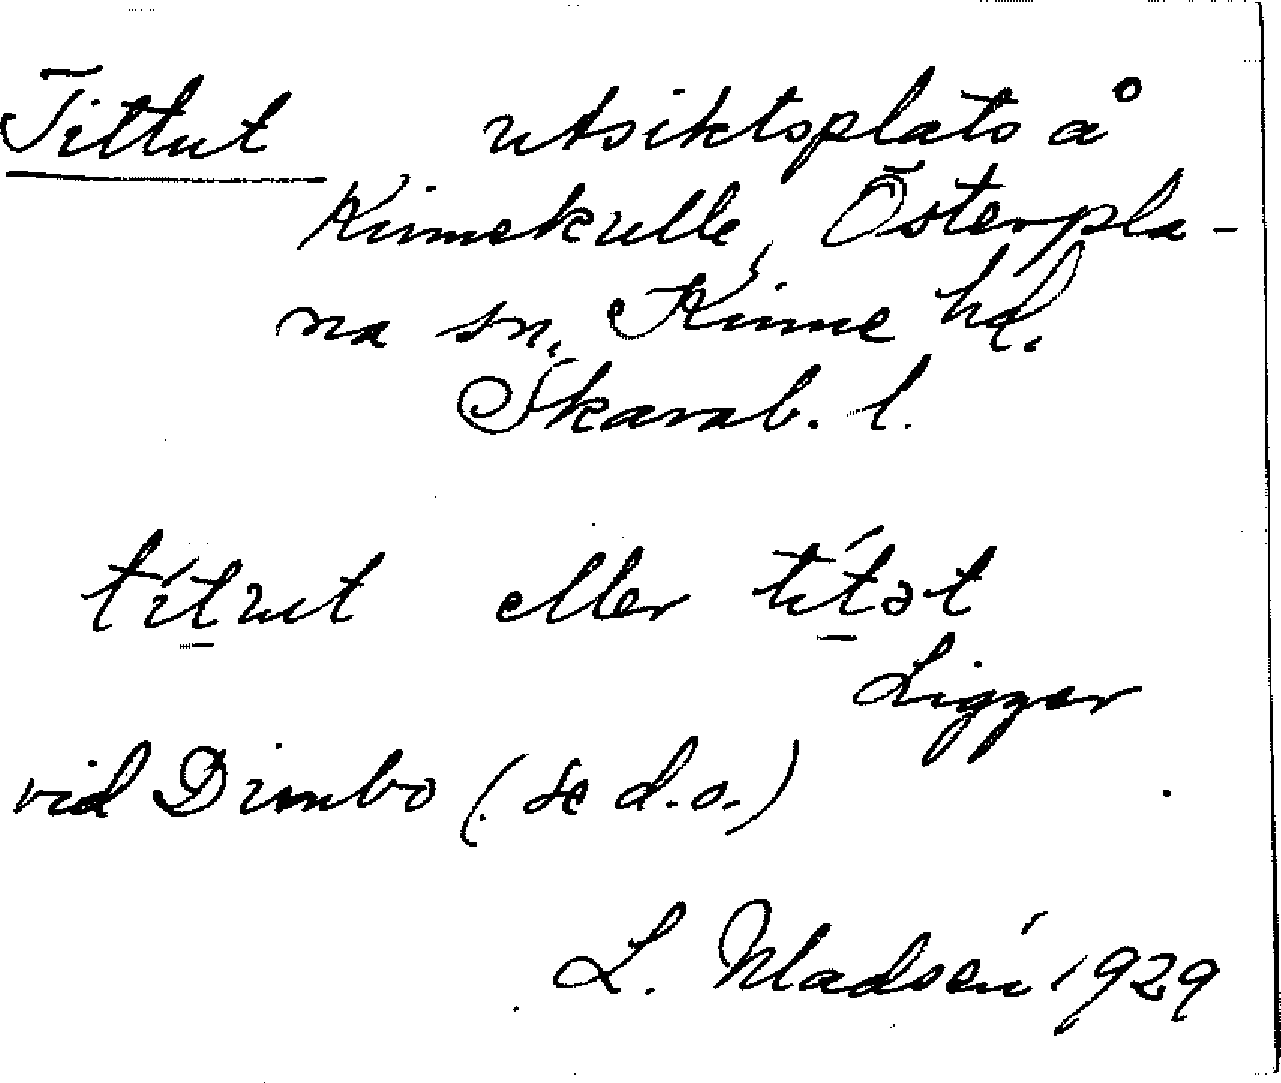 Tittut utsiktsplats å
Kinnekulle, Österpla-
na sn, Kinne hd.
Skarab. l.
títut eller títət
Ligger
vid Dimbo (se d.o.)
L. Madsén 1929